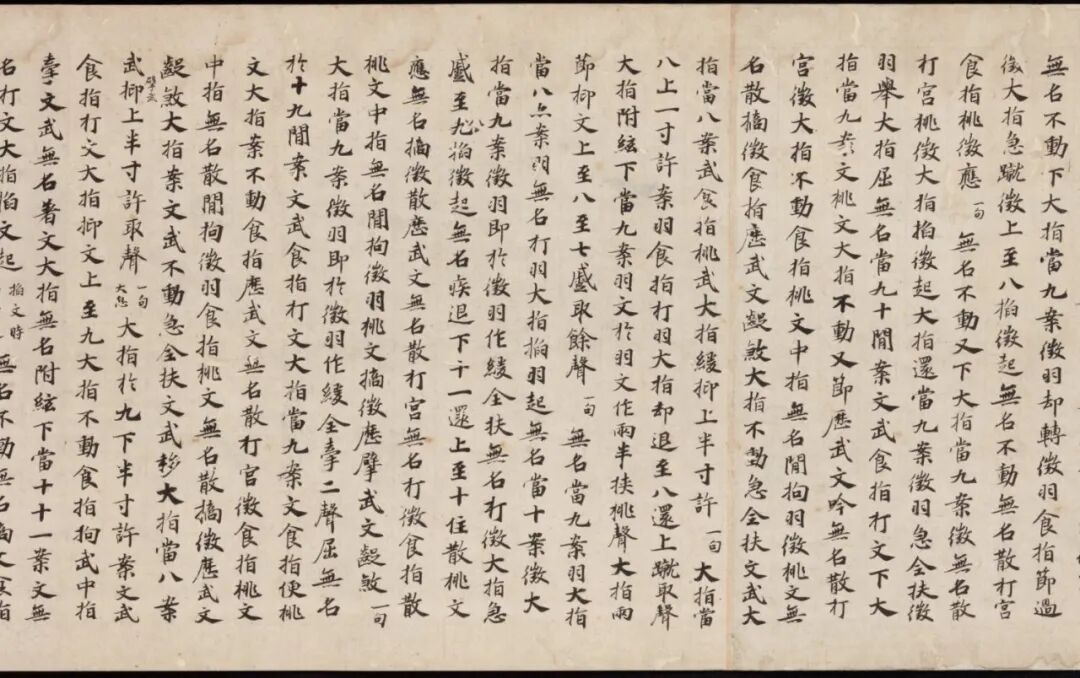 無名不動下大指當九案徵羽却轉徵羽食指節過
後大指急蹴徵上至八掐徵起無名不動無名散打宮
食指挑徵應一句 無名不動又下大指當九案徵無名散
打宮挑徵大指掐徵起大指還當九案徵羽急全扶徵
羽舉大指屈無名當九十間案文武食指打文下大
指當九案文挑文大指不動又節歷武文吟無名散打
宮徵大指不動食指挑文中指無名間拘羽徵挑文無
名散擿徵食指歷武文齪煞大指不動急全扶文武大
指當八案武食指挑武大指緩抑上半寸許一句 大指當
八上一寸許案羽食指打羽大指却退至八還上蹴取聲
大指附絃下當九案羽文於羽文作兩半扶挑聲大指兩
節抑文上至八至七慼取餘聲一句 無名當九案羽大指
當八六案羽無名打羽大指掐羽起無名當十案徵大
指當九案徵羽即於徵羽作緩全扶無名打徵大指急
慼至八掐徵起無名疾退下十一還上至十住散挑文
應無名擿徵散歷武文無名散打宮無名打徵食指散
挑文中指無名間拘徵羽挑文擿徵歷擘武文齪煞一句
大指當九案徵羽即於徵羽作緩全牽二聲屈無名
於十九間案文武食指打文大指當九案文食指便挑
文大指案不動食指歷武文無名散打宮徵食指挑文
中指無名散間拘徵羽食指挑文無名散擿徵歷武文
齪煞大指案文武不動急全扶文武 大指當八案
武抑上半寸許取聲一句 大指於九下半寸許案文武
食指打文大指抑文上至九大指不動食指拘武中指
牽文武無名著文大指無名附絃下當十十一案文無
名打文大指掐文起掐文時 無名不動無名擿文食指